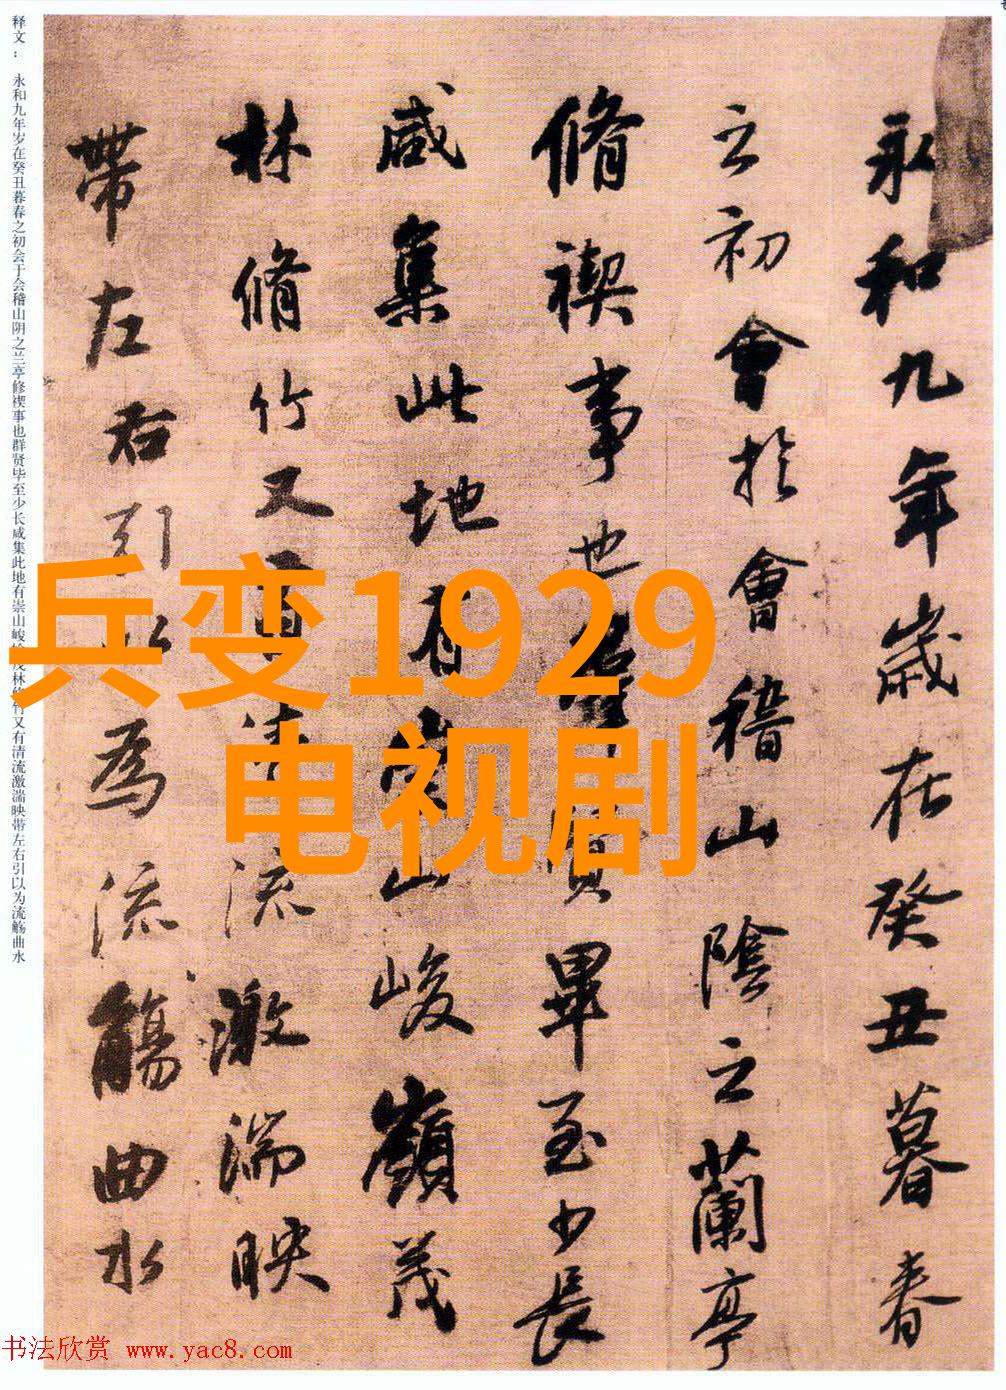 永和九年歲在癸丑暮春
之初會於會稽山陰之蘭亭
脩禊事也群賢畢至少長
咸集此地有崇山峻嶺茂
林脩竹又有清流激湍映
帶左右引以為流觴曲水
释文：永和九年岁在癸丑暮春之初会于会稽山阴之兰亭修禊事也群贤毕至少长咸集此地有崇山峻岭茂林修竹又有清流激湍映带左右引以为流觞曲水
兵变1929
电视剧
书法欣赏 www.yac8.com